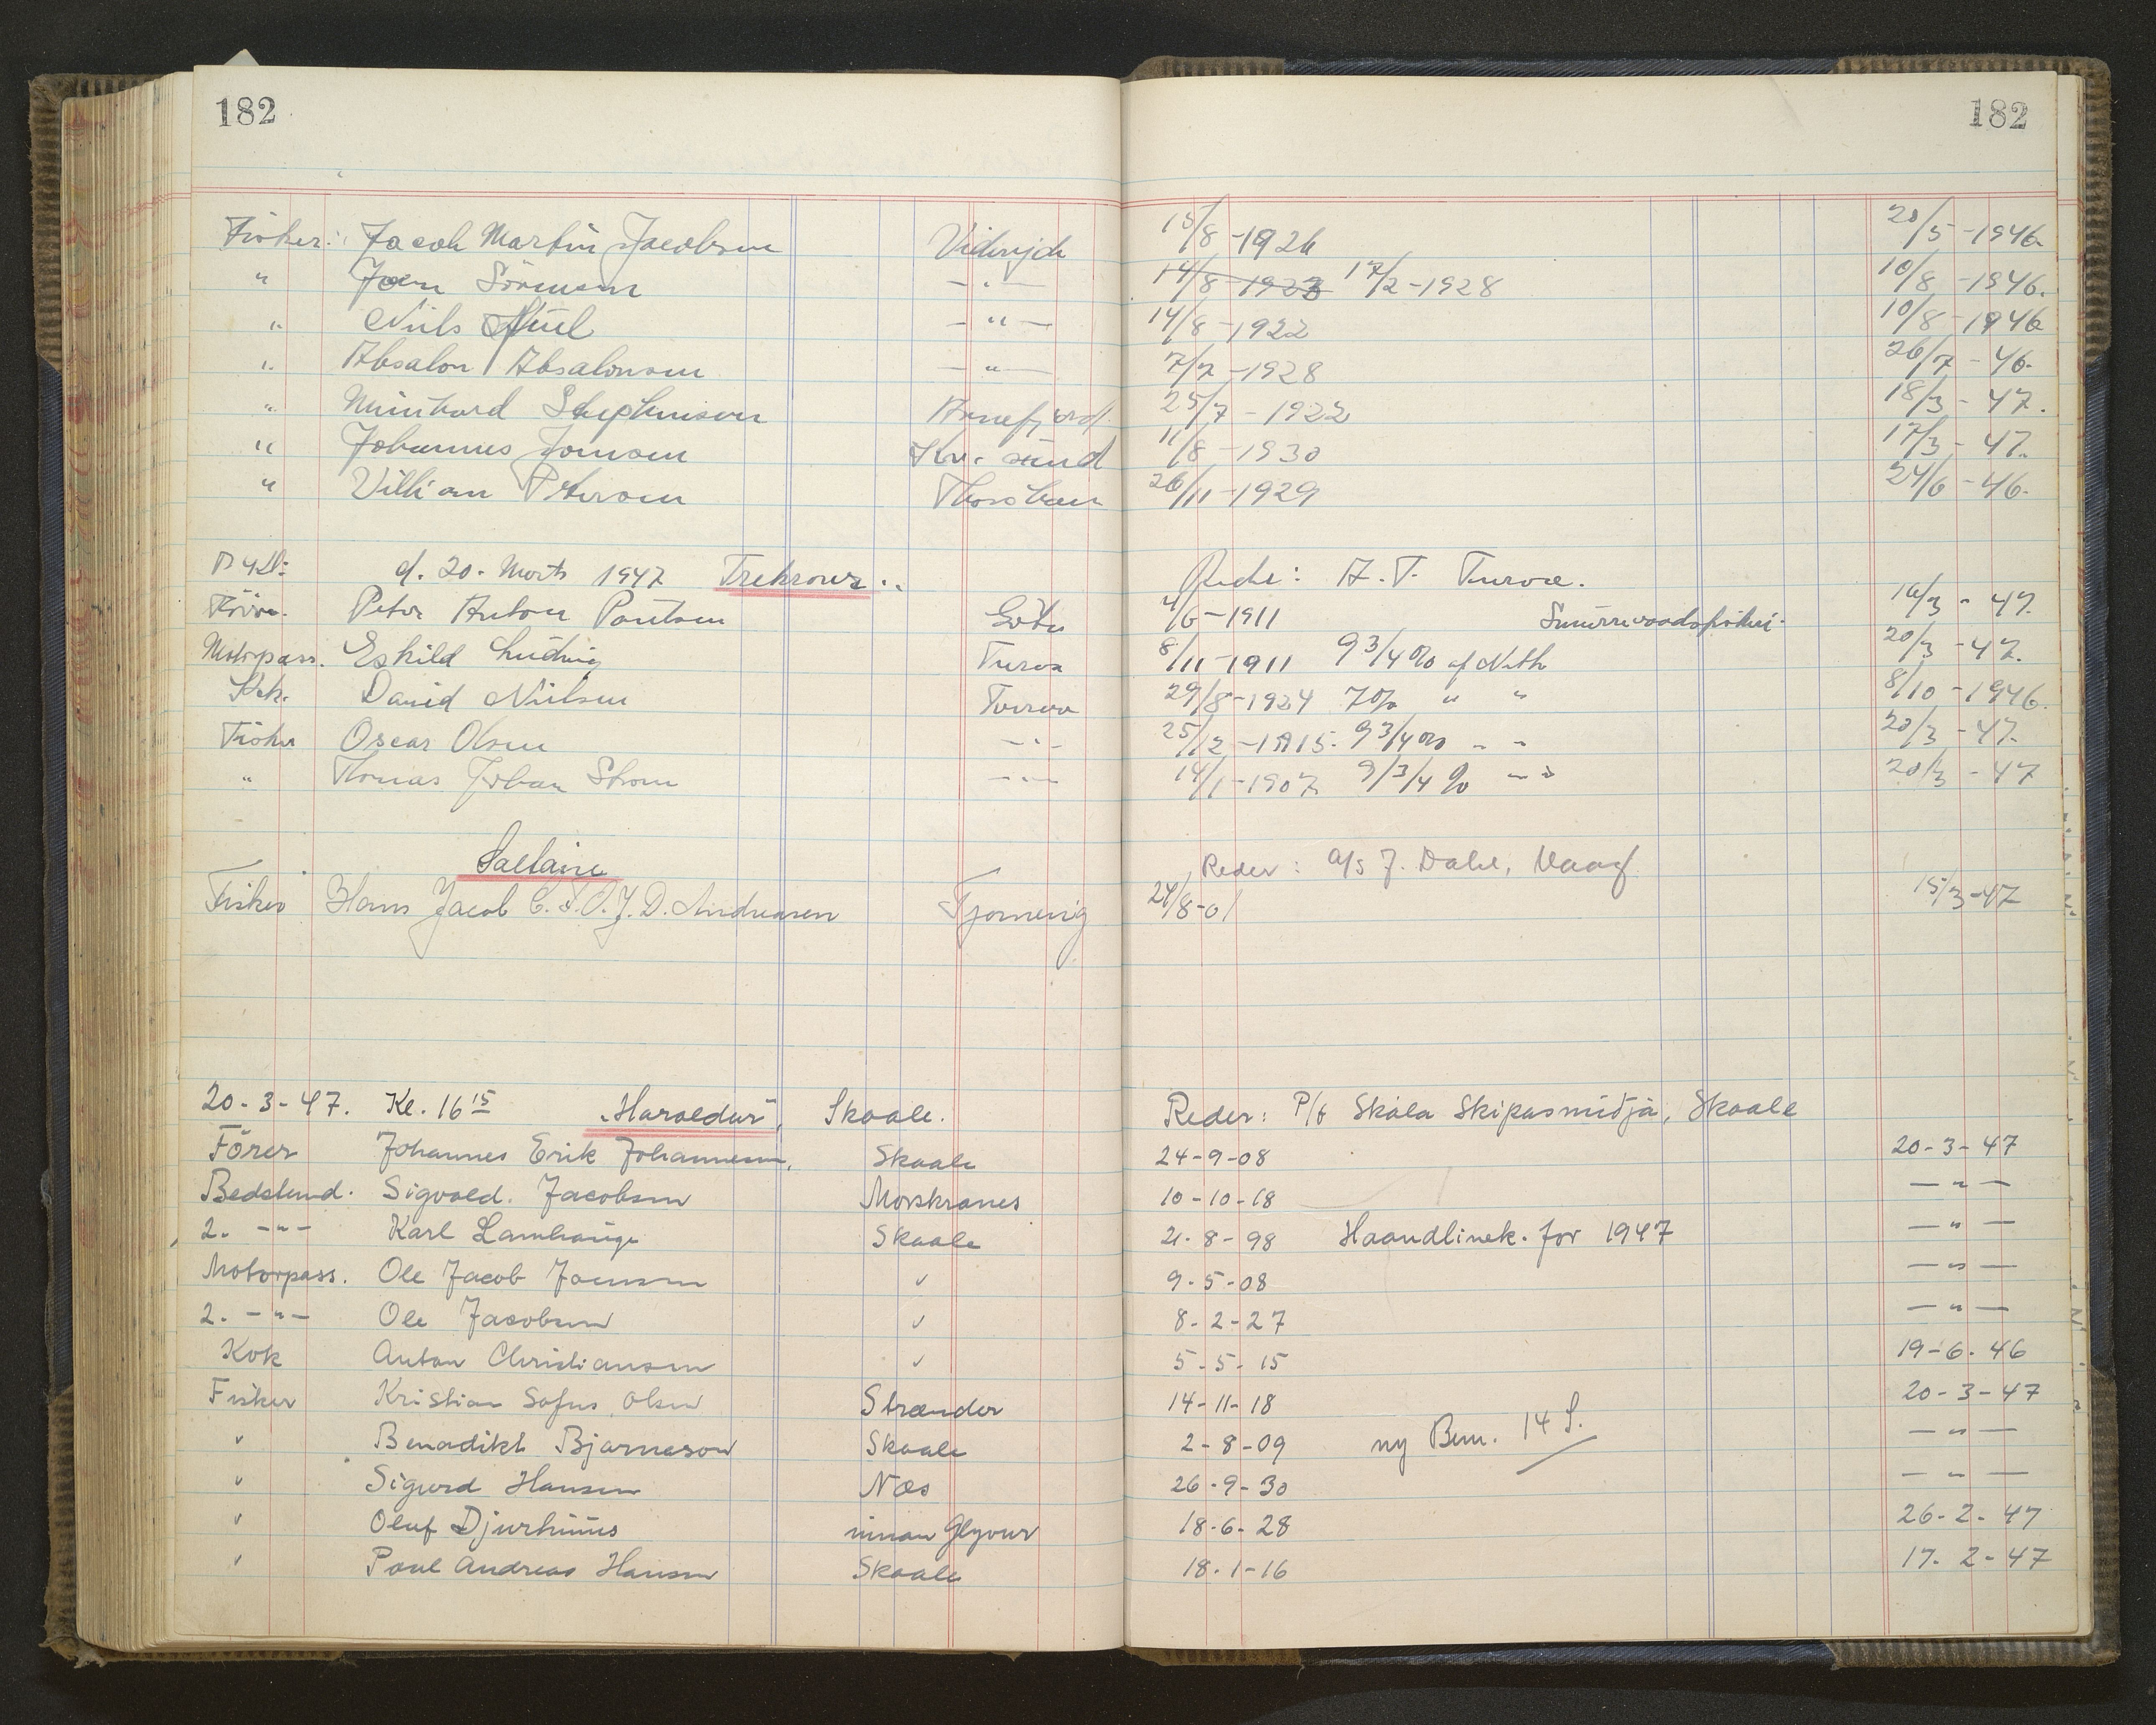 182 182
Fisker. Jacob Martin Jacobsen Videiyde 15/8 - 1926 20/5 - 1946.
" Joen Sörensen - " - 14/8 - 1923 17/2 - 1928 10/8 - 1946.
" Niels - " - 14/8 - 1922 10/8 - 1946
" Absalon Absalonsen - " - 7/7 - 1928 26/7 - 46.
" Meinhard Stephansen Arnefjord 25/7 - 1922 18/3 - 47.
" Johannes Joensen Kv. sund 11/8 - 1930 17/3 - 47.
" Villiam Petersen Thorshavn 26/11 - 1929 24/6 - 46.
d. 20. Marts 1947 Trekroner. Reder: A. T. Turvoe.
Förer. Peter Anton Poulsen Göta /6 - 1911 Snurrevoadsfiskeri. 14/3 - 47.
Motorpass. Eskild Ludvig Tvera 8/11 - 1911 9 3/4 % af Netto 20/3 - 47.
Kok. David Nielsen Tveraa 29/8 - 1924 7% " " 8/10 - 1946.
Fisker Oscar Olsen - " - 25/12 - 1915. 9 3/4 % " " 20/3 - 47.
" Thomas Johan Strom - " - 14/1 - 1907 9/3/4 % " " 20/3 - 47
Saltaire Reder: A/S J. Dahl, Vaag
Fisker Hans Jacob C. F. O. J. D. Andreasen Fjorneng 24/8 - 01 15/3 - 47
20 - 3 - 47. Kl. 16 15 "Haraldur", Skaale. Reder: P/f Skála Skipasmidja, Skaale
Förer Johannes Erik Johannesen, Skaale 24 - 9 - 08 20 - 3 - 47
Bedstemd. Sigvald. Jacobsen Morskranes 10 - 10 - 18 - " -
2. - " - Karl Lamhauge Skaale 21 - 8 - 98 Haandlinek. for 1947 - " -
Motorpass. Ole Jacob Joensen v 9 - 5 - 08 - " -
2. - " - Ole Jacobsen v 8 - 2 - 27 - " -
Kok Anton Christiansen v 5 - 5 - 15 19 - 6 - 46
Fisker Kristian Sofus Olsen Strænder 14 - 11 - 18 20 - 3 - 47
v Benadikt Bjarnason Skaale 2 - 8 - 09 ny Bem. 14 S. - " -
v Sigurd Hansen Næs 26 - 9 - 30 - " -
v Oluf Djurhuus innan Glyvur 18 - 6 - 28 26 - 2 - 47
v Poul Andreas Hansen Skaale 18 - 1 - 16 17 - 2 - 47